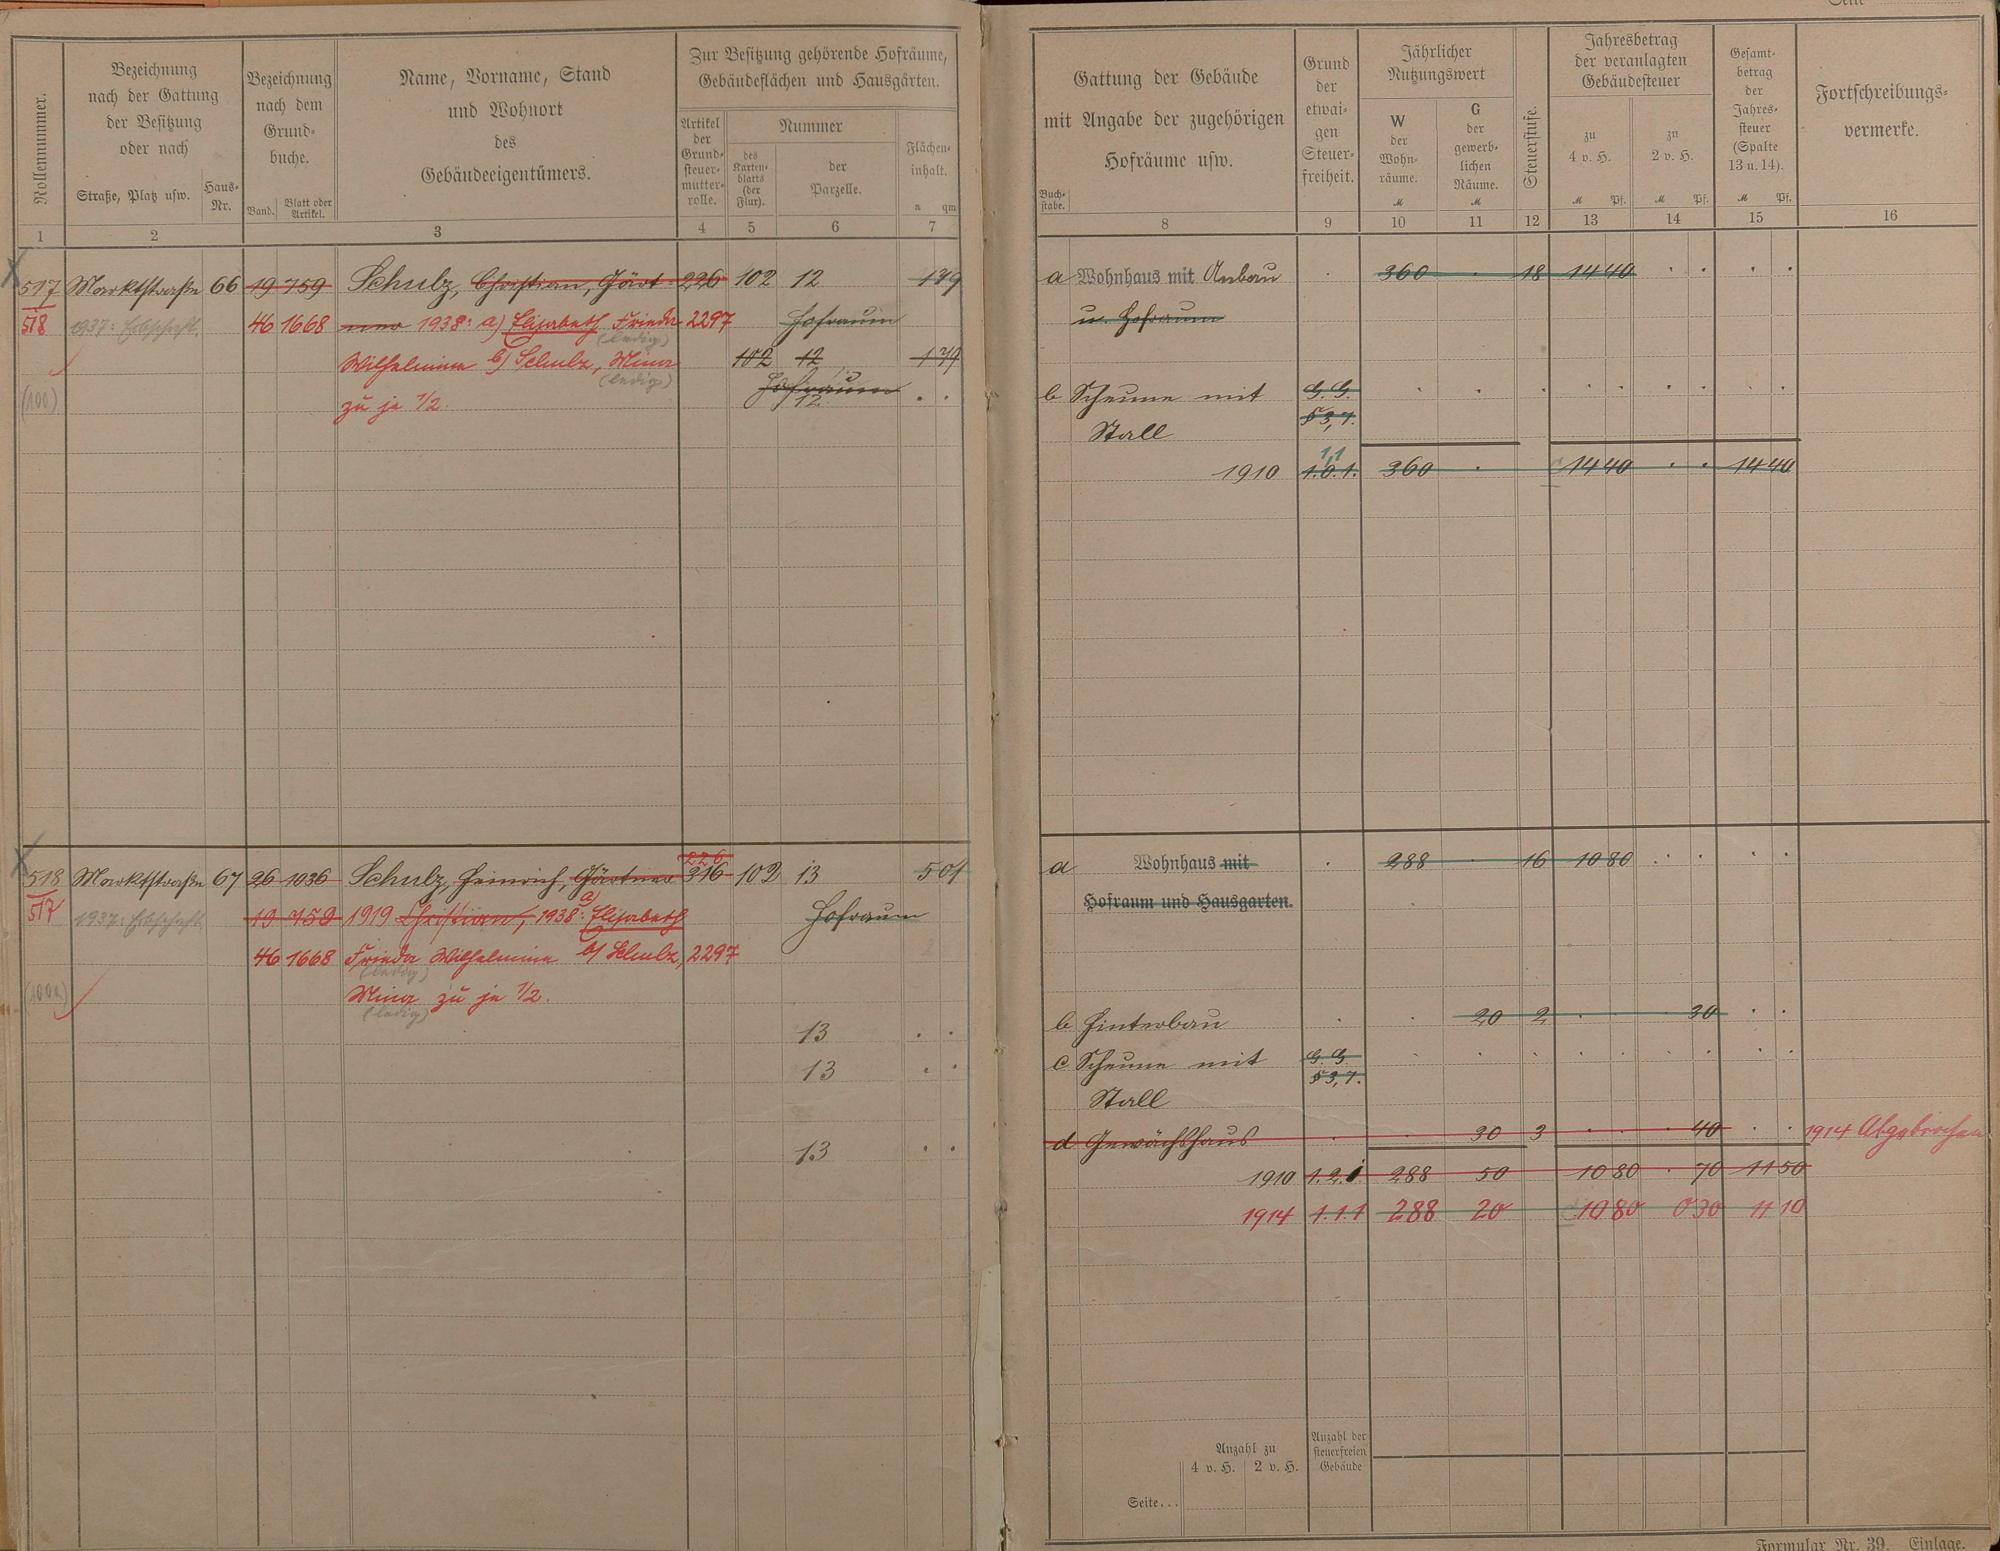 Seite
Rollennummer.
Bezeichnung
nach der Gattung
der Besitzung
oder nach
Straße, Platz usw.
Haus-
Nr.
Bezeichnung
nach dem
Grund-
buche.
Band.
Blatt oder
Artikel.
Name, Vorname, Stand
und Wohnort
des
Gebäudeeigentümers.
Zur Besitzung gehörende Hofräume,
Gebäudeflächen und Hausgärten.
Artikel
der
Grund-
steuer-
mutter-
rolle.
Nummer
des
Karten-
blatts
(der
Flur).
der
Parzelle.
Flächen-
inhalt.
a qm
1 2 3 4 5 6 7
517 Marktstraße 66 19 759 Schulz, Christian, Gärt- 226 102 12 179
518 1937: Erbschaft. 46 1668 ner 1938: a) Elisabeth Frieda 2297 Hofraum
(ledig)
Wilhelmine b) Schulz, Mina 102 12 179
(ledig)
Hofraum
(100) zu je 1/2. 12 . .
226
518 Marktstraße 67 26 1036 Schulz, Heinrich, Gärtner 316 102 13 501
517 1937: Erbschaft 19 759 1919 Christian, 1938: a) Elisabeth Hofraum
46 1668 Frieda Wilhelmine b) Schulz, 2297
(ledig)
(100a) Mina zu je 1/2.
(ledig)
13 . .
13 . .
13 . .
Gattung der Gebäude
mit Angabe der zugehörigen
Hofräume usw.
Buch-
stabe.
Grund
der
etwai-
gen
Steuer-
freiheit.
Jährlicher
Nutzungswert
W
der
Wohn-
räume.
M
G
der
gewerb-
lichen
Räume.
M
Steuerstufe.
Jahresbetrag
der veranlagten
Gebäudesteuer
zu
4 v. H.
M Pf.
zu
2 v. H.
M Pf.
Gesamt-
betrag
der
Jahres-
steuer
(Spalte
13 u. 14).
M Pf.
Fortschreibungs-
vermerke.
8 9 10 11 12 13 14 15 16
a Wohnhaus mit Anbau . 360 . 18 14 40 . . . .
u. Hofraum
b Scheune mit G. G. . . . . . . . . .
Stall § 3,7.
1,1
1910 1.0.1. 360 . 14 40 . . 14 40
a Wohnhaus mit . 288 . 16 10 80 . . . .
Hofraum und Hausgarten.
b Hinterbau . . 20 2 . . . 30 . .
c Scheune mit G. G. . . . . . . . . .
Stall § 3,7.
d Gewächshaus . . 30 3 . . . 40 . . 1914 Abgebrochen
1910 1.2.1 288 50 10 80 . 70 11 50
1914 1.1.1 288 20 10 80 0 30 11 10
Anzahl zu
4 v. H. 2 v. H.
Anzahl der
steuerfreien
Gebäude
Seite...
Formular Nr. 39. Einlage.